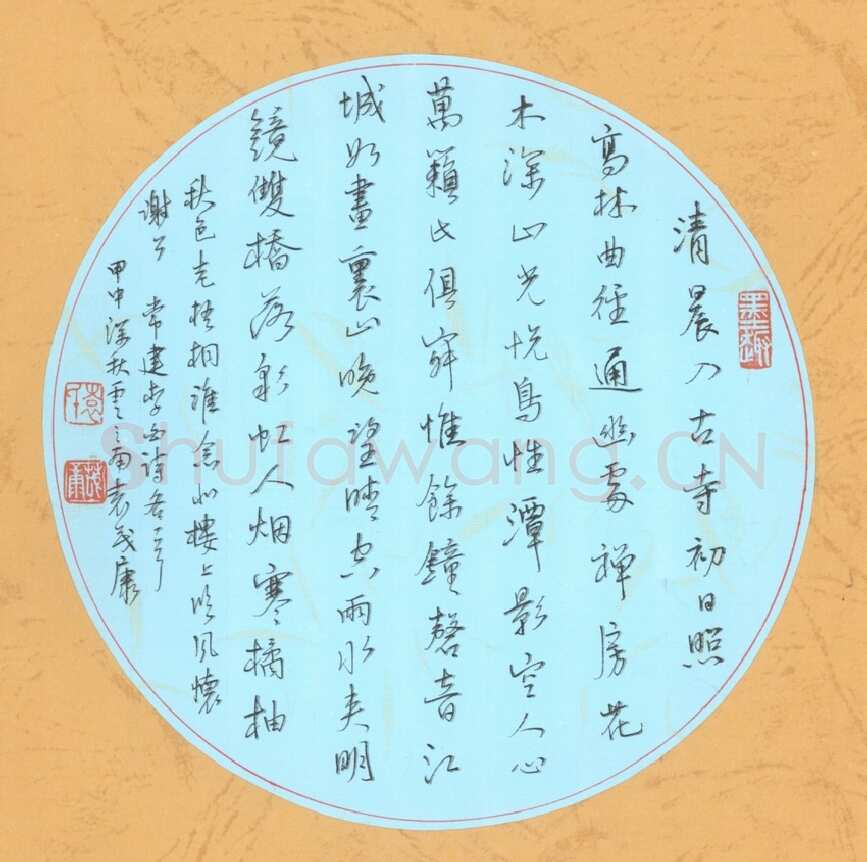 清晨入古寺初日照
高林曲徑通幽處禪房花
木深山光悦鳥性潭影空人心
萬籟此俱寂惟餘鐘磬音江
城如畫裏山晚望晴空兩水夾明
鏡雙橋落彩虹人烟寒橘柚
秋色老梧桐誰念北樓上臨風懷
謝公 常建李白詩各一首
甲申深秋雲之南袁茂康
墨趣
茂康
Shufawang.CN